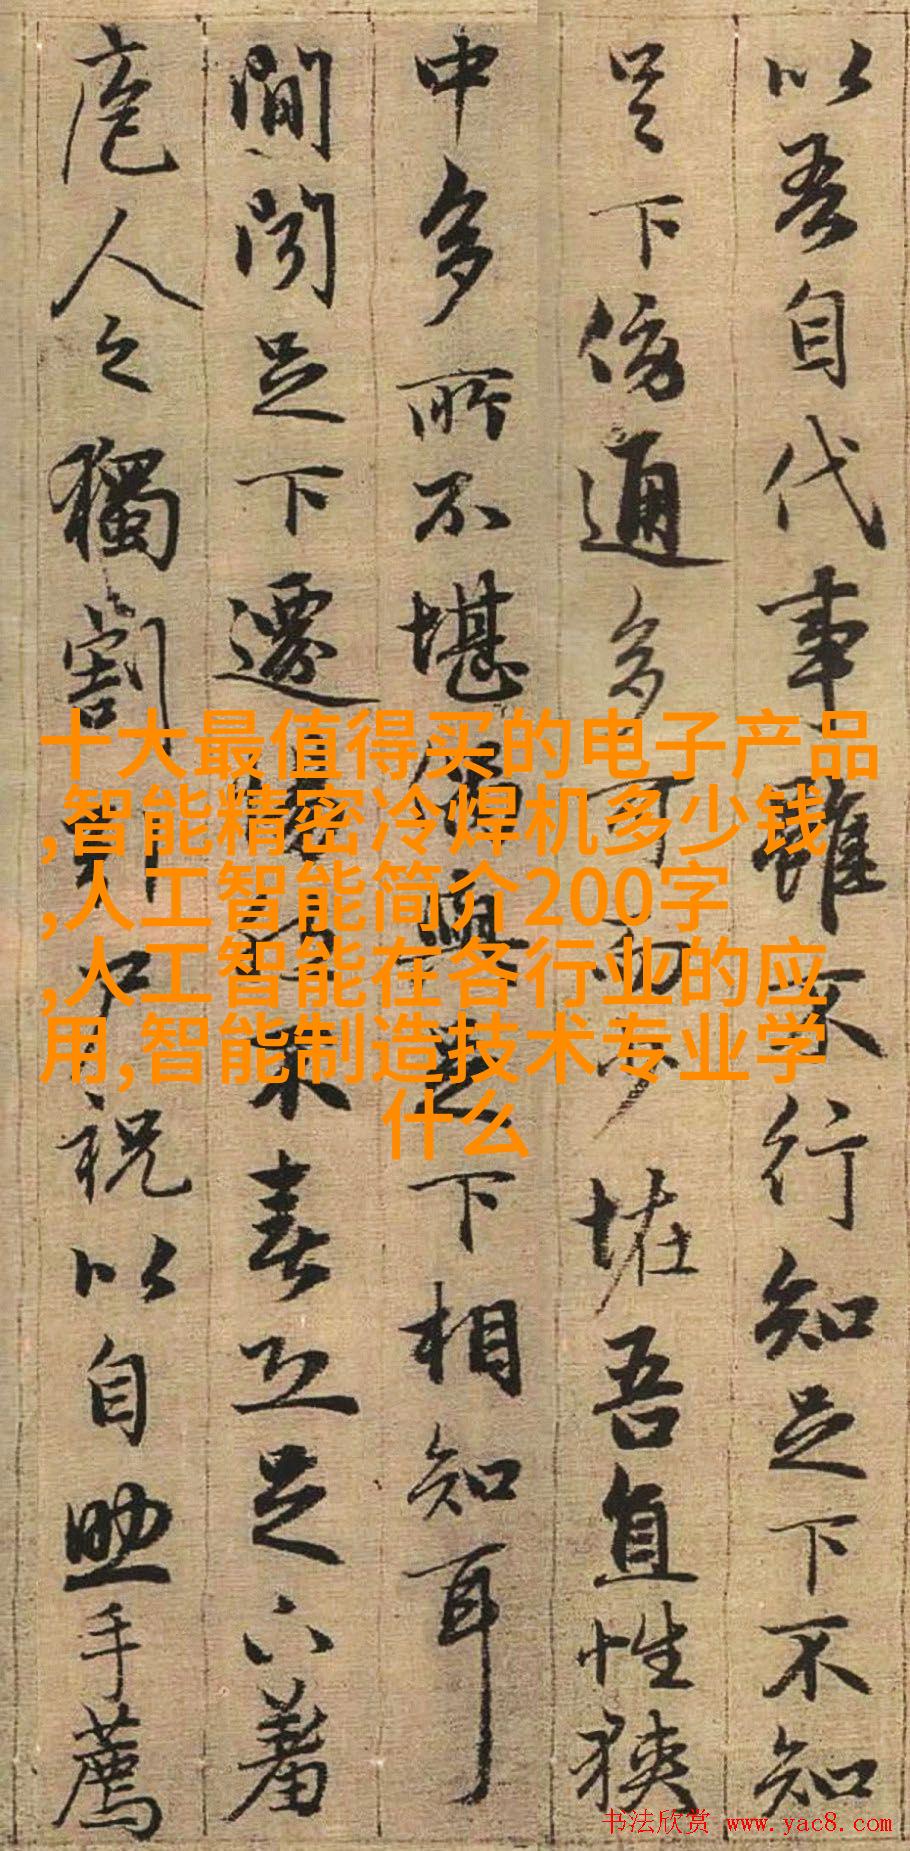 以吾自代事雖不行知足下不知
足下傍通多可而少恠吾直性狹
中多所不堪偶與足下相知耳
間聞足下遷惕然不喜恐足下羞
庖人之獨割引尸祝以自助手薦
十大最值得买的电子产品
,智能精密冷焊机多少钱
,人工智能简介200字
,人工智能在各行业的应
用,智能制造技术专业学
什么
书法欣赏 www.yac8.com